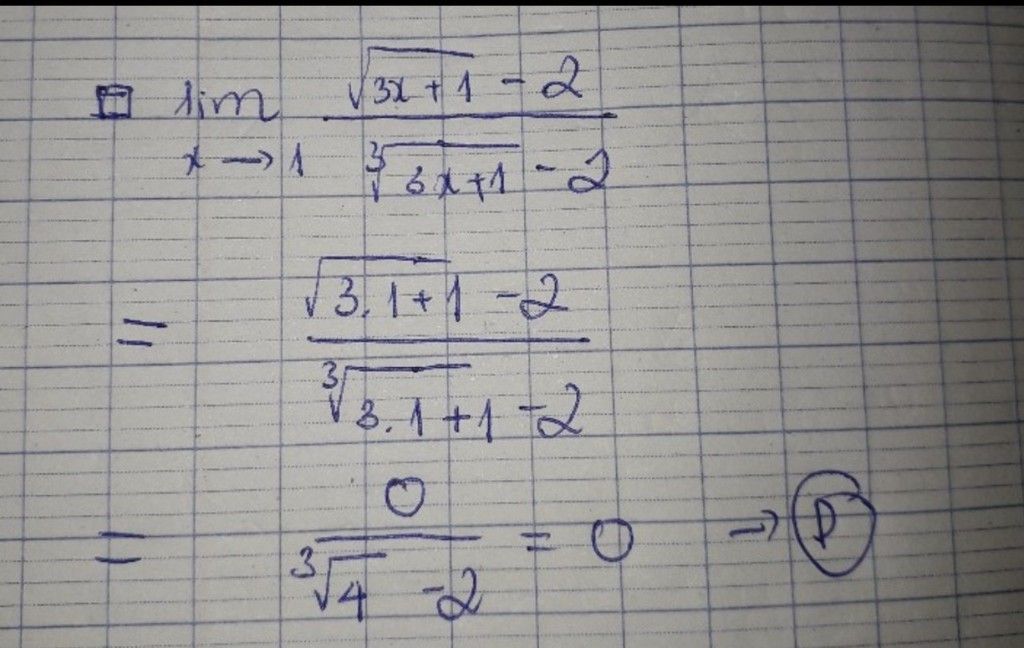 lim x → 1 (√(3x + 1) - 2) / (∛(3x + 1) - 2)
= (√(3.1 + 1) - 2) / (∛(3.1 + 1) - 2)
= 0 / (∛4 - 2) = 0 → D